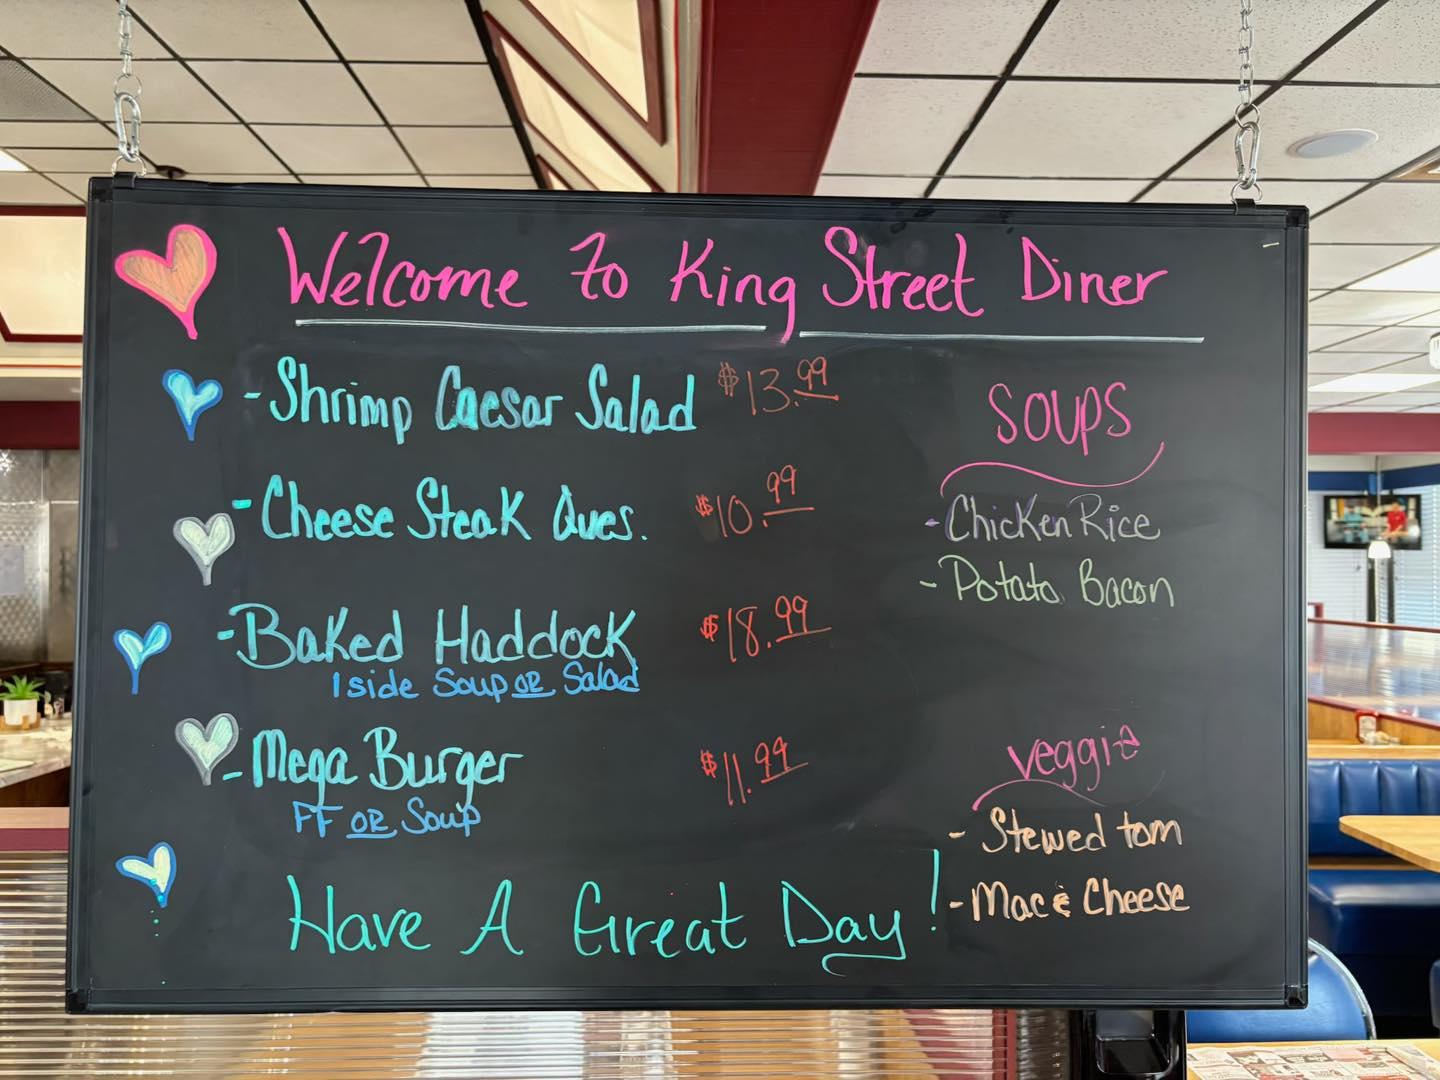 Welcome To King Street Diner
- Shrimp Caesar Salad $13.99
- Cheese Steak Ques. $10.99
- Baked Haddock $18.99
1 side Soup OR Salad
- Mega Burger $11.99
FF OR Soup
Have A Great Day!
SOUPS
- Chicken Rice
- Potato Bacon
veggie
- Stewed tom
- Mac & Cheese